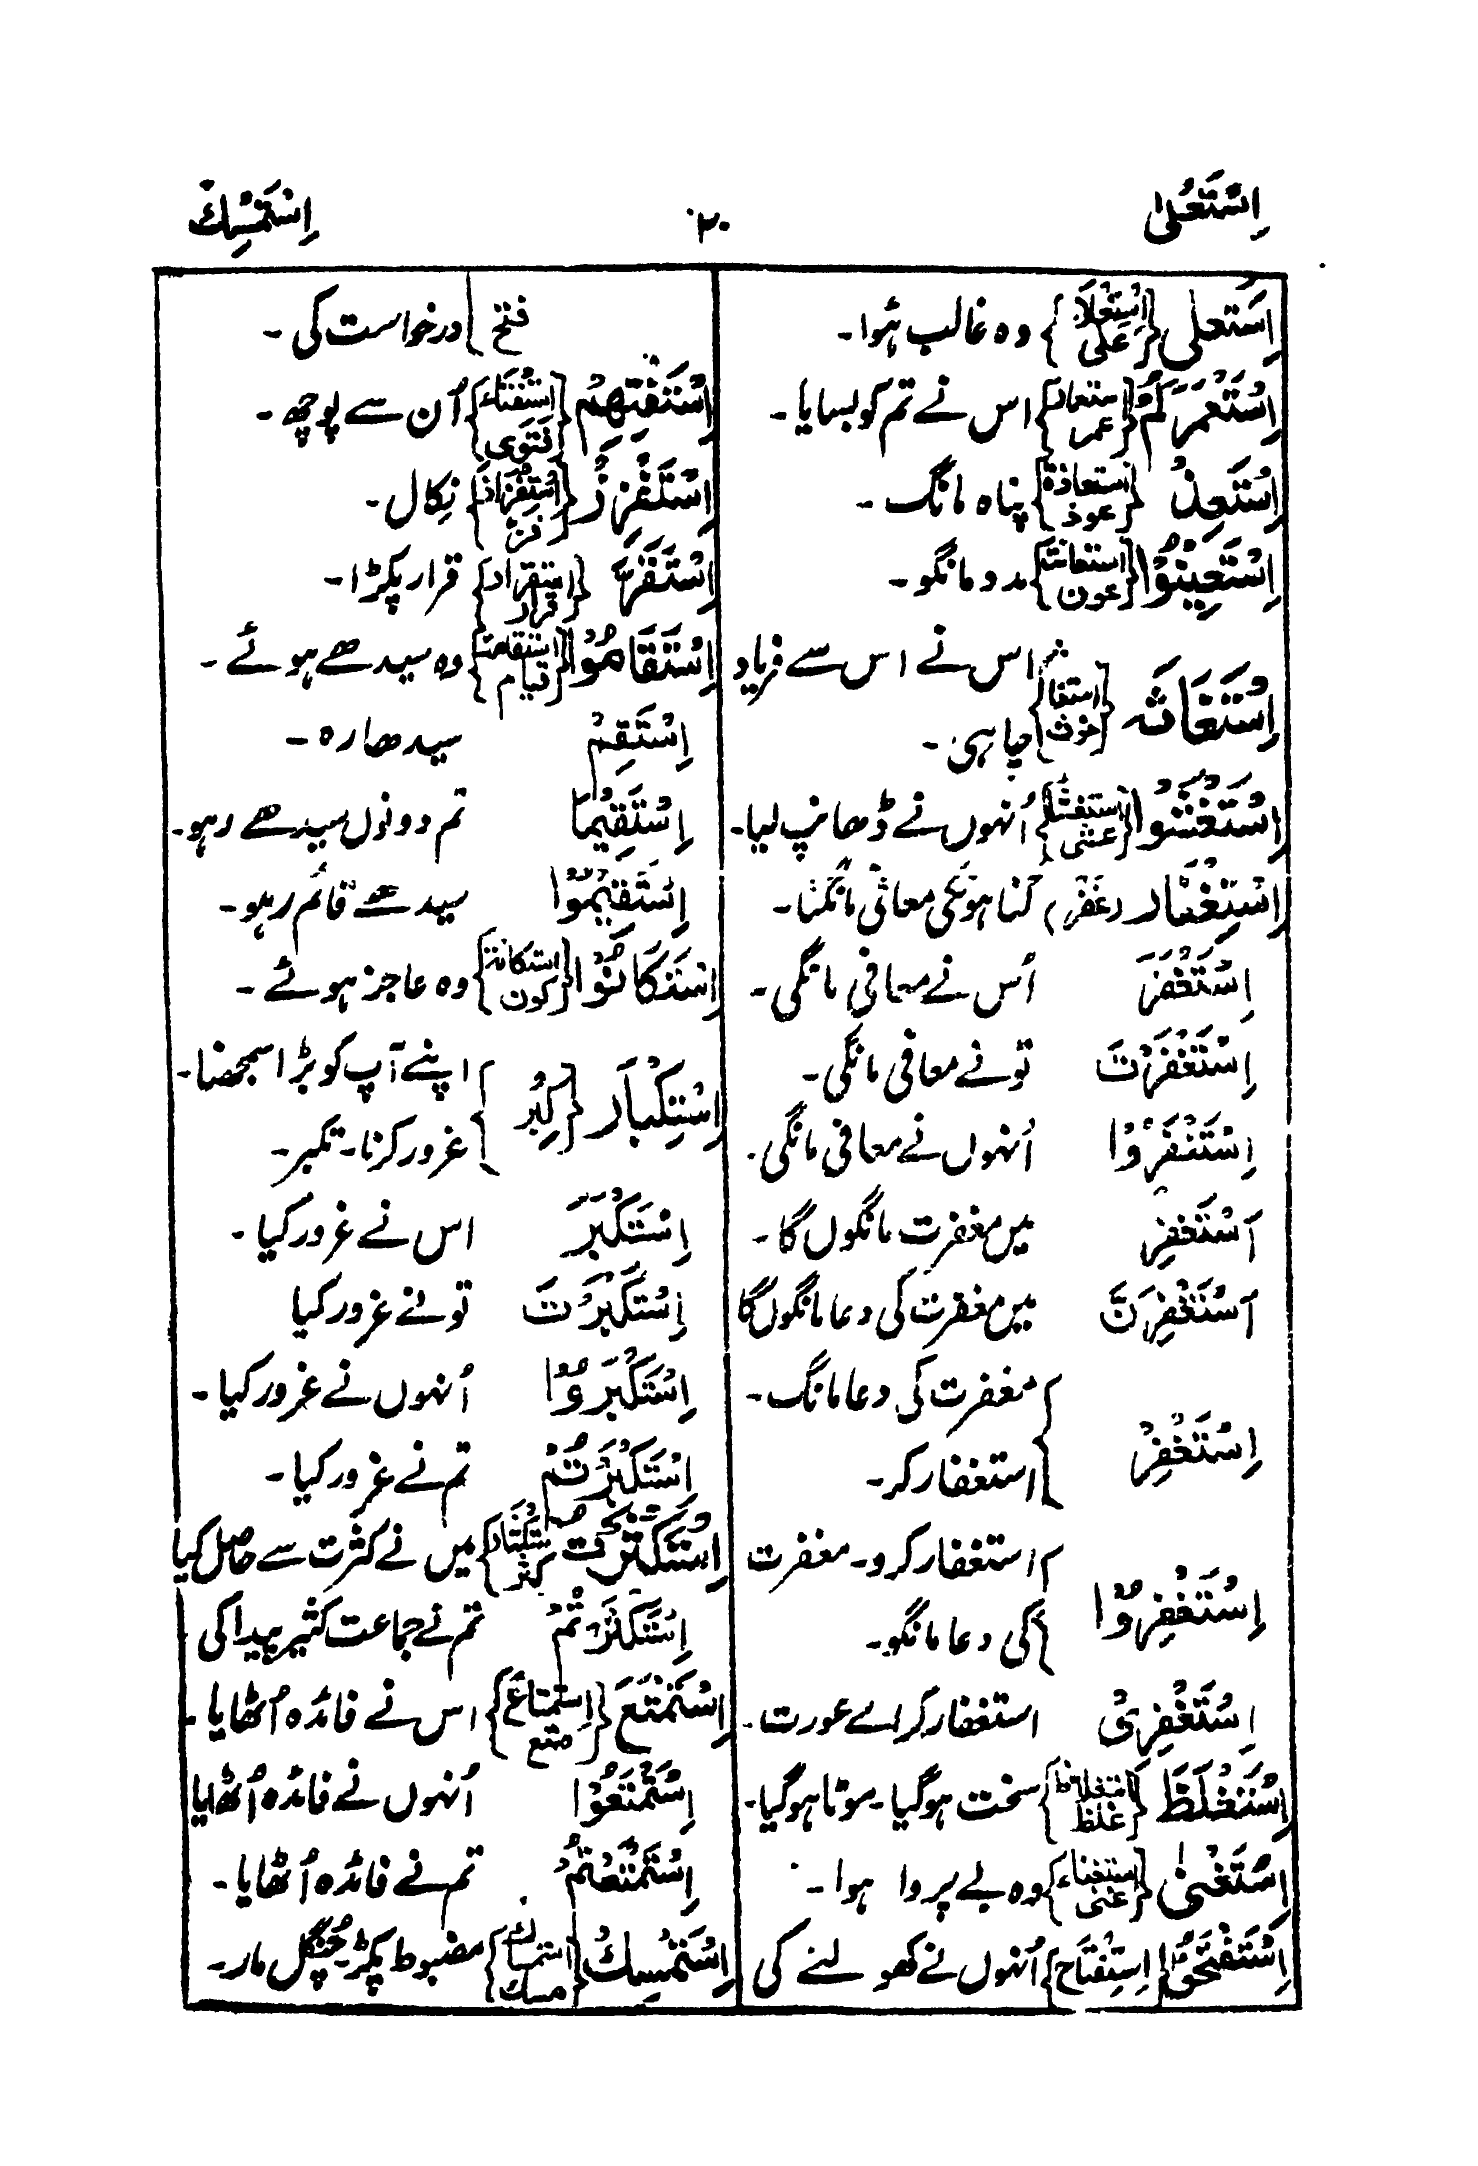 اِسْتَعْلٰی ۲۰ اِسْتَمْسِكْ
اِسْتَعْلٰی {اِسْتِعْلَاءٌ عَلٰی} وہ غالب ہُوا۔
اِسْتَعْمَرَكُمْ {استعمار عمر} اس نے تم کو بسایا۔
اِسْتَعِذْ {استعاذة عوذ} پناہ مانگ۔
اِسْتَعِیْنُوْا {استعانة عون} مدد مانگو۔
اِسْتَغَاثَهٗ {استغاثہ غوث} اس نے اس سے فریاد
چاہی۔
اِسْتَغْشَوْا {استغشاء غشی} اُنہوں نے ڈھانپ لیا۔
اِسْتِغْفَار (غَفْر) گناہونکی معافی مانگنا۔
اِسْتَغْفَرَ اُس نے معافی مانگی۔
اِسْتَغْفَرْتَ تُونے معافی مانگی۔
اِسْتَغْفَرُوْا اُنہوں نے معافی مانگی۔
اَسْتَغْفِرُ میں مغفرت مانگوں گا۔
اَسْتَغْفِرَنَّ میں مغفرت کی دعا مانگوں گا
اِسْتَغْفِرْ مغفرت کی دعا مانگ۔
استغفار کر۔
اِسْتَغْفِرُوْا استغفار کرو۔ مغفرت
کی دعا مانگو۔
اِسْتَغْفِرِیْ استغفار کر اے عورت۔
اِسْتَغْلَظَ {استغلاظ غلظ} سخت ہوگیا۔ موٹا ہوگیا۔
اِسْتَغْنٰی {استغناء غنی} وہ بے پروا ہوا۔
اِسْتَفْتَحُوْا {اِسْتِفْتَاح} اُنہوں نے کھولنے کی
فتح} درخواست کی۔
اِسْتَفْتِهِمْ {اِسْتِفْتَاء فَتْوٰی} اُن سے پوچھ۔
اِسْتَفْزِزْ {اِسْتِفْزَاز فزّ} نکال۔
اِسْتَقَرَّ {استقرار قرار} قرار پکڑا۔
اِسْتَقَامُوْا {استقامة قیام} وہ سیدھے ہوئے۔
اِسْتَقِمْ سیدھا رہ۔
اِسْتَقِیْمَا تم دونوں سیدھے رہو۔
اِسْتَقِیْمُوْا سیدھے قائم رہو۔
اِسْتَكَانُوْا {استكانة كون} وہ عاجز ہوئے۔
اِسْتِكْبَار {كِبْر} اپنے آپ کو بڑا سمجھنا۔
غرور کرنا۔ تکبر۔
اِسْتَكْبَرَ اس نے غرور کیا۔
اِسْتَكْبَرْتَ تونے غرور کیا
اِسْتَكْبَرُوْا اُنہوں نے غرور کیا۔
اِسْتَكْبَرْتُمْ تم نے غرور کیا۔
اِسْتَكْثَرْتُ {استكثار كثر} میں نے کثرت سے حاصل کیا
اِسْتَكْثَرْتُمْ تم نے جماعت کثیر پیدا کی
اِسْتَمْتَعَ {اِسْتِمْتَاعٌ متع} اس نے فائدہ اُٹھایا۔
اِسْتَمْتَعُوْا اُنہوں نے فائدہ اُٹھایا
اِسْتَمْتَعْتُمْ تم نے فائدہ اُٹھایا۔
اِسْتَمْسِكْ {استمساك مسك} مضبوط پکڑ۔ چُنگل مار۔